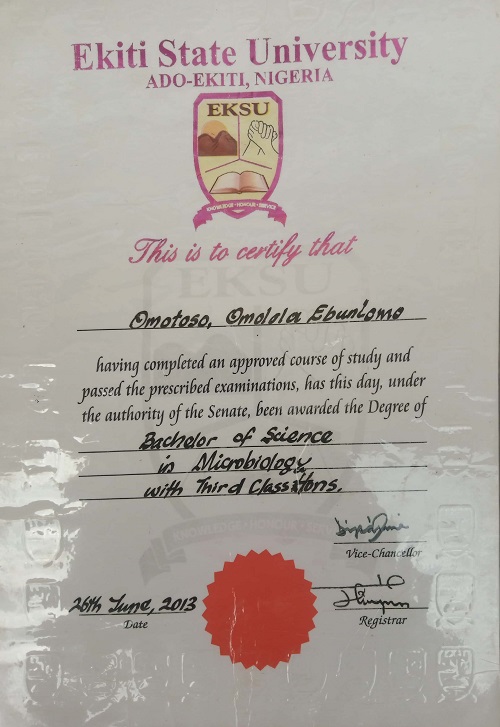 Ekiti State University
ADO-EKITI, NIGERIA
EKSU
KNOWLEDGE · HONOUR · SERVICE
This is to certify that
EKSU
Omotoso, Omolola Ebunlomo
having completed an approved course of study and
passed the prescribed examinations, has this day, under
the authority of the Senate, been awarded the Degree of
Bachelor of Science
in Microbiology
with Third Class Hons.
Vice-Chancellor
26th June, 2013
Date
Registrar